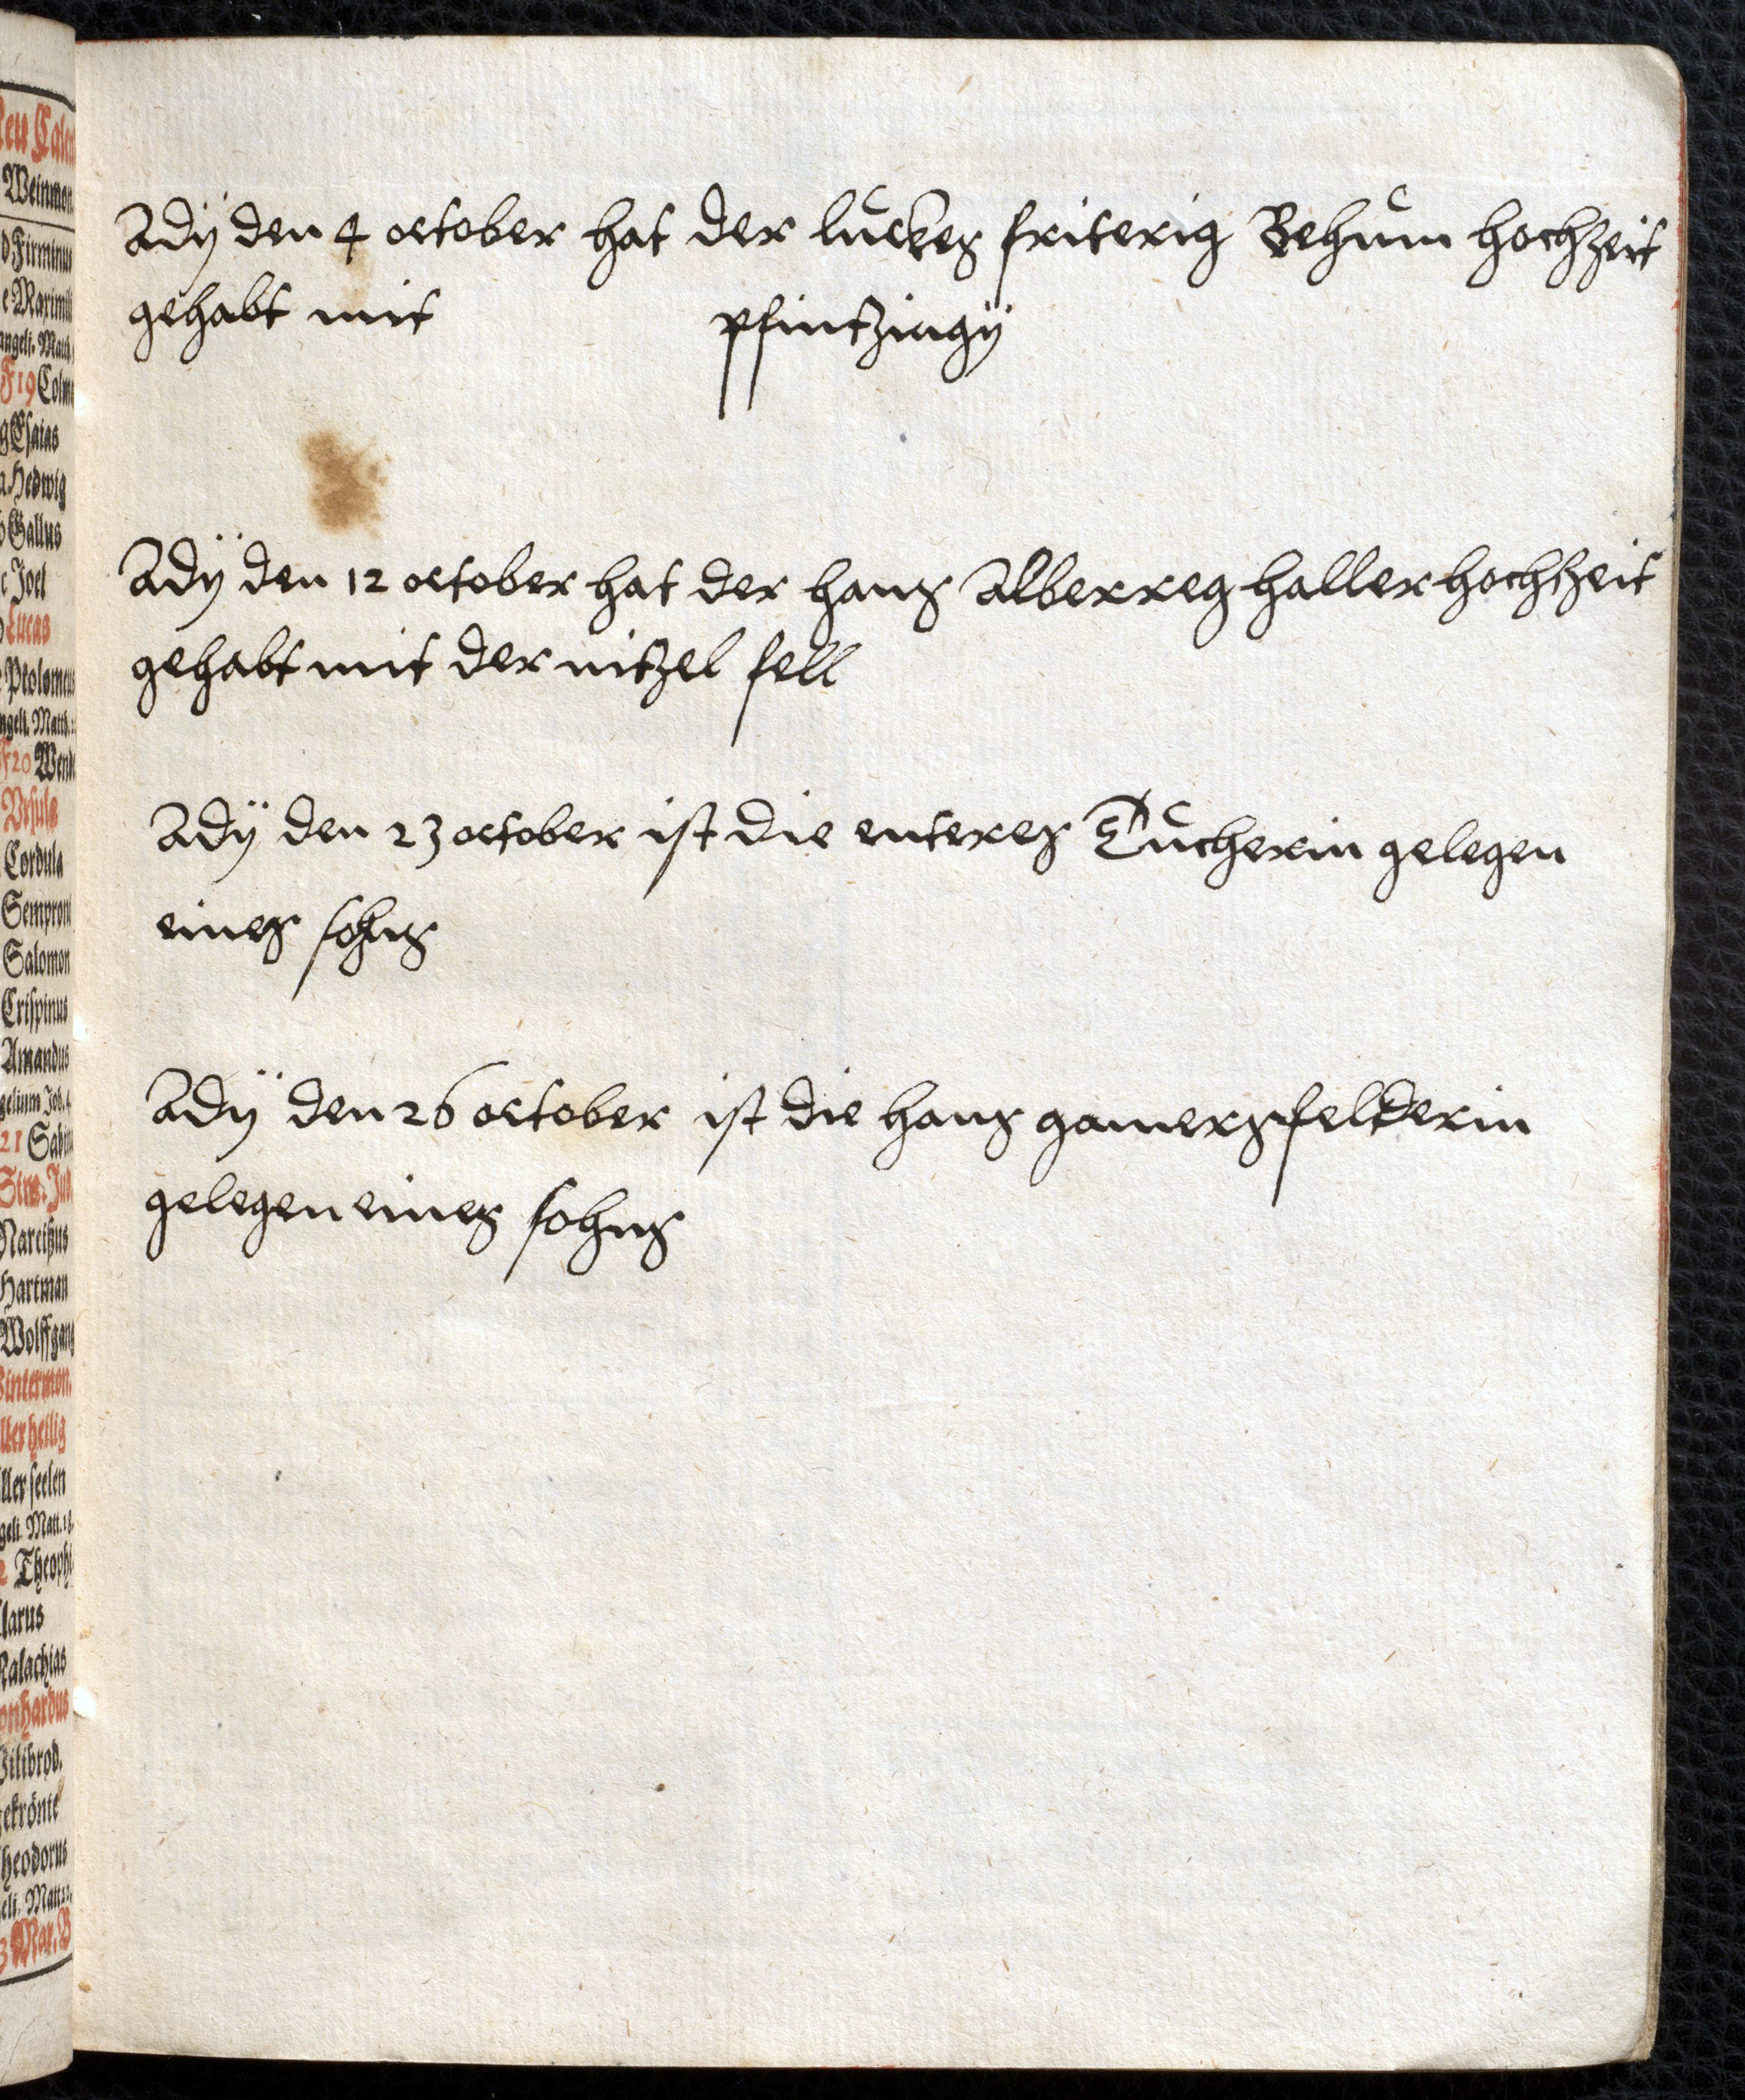 Neu Calen
Weinmon.
d Firminus
e Maximili
angeli. Matth.
F 19 Colm
g Esaias
a Hedwig
b Gallus
c Joel
Lucas
Ptolomeus
ngeli. Matth.
F 20 Wend
Vrsula
Cordula
Semproni
Salomon
Crispinus
Amandus
gelium Joh. 4
21 Sabina
Sim. Jud
Narcißus
Hartman
Wolffgang
Wintermon.
ller heilig
ller seelen
geli. Matt. 18.
2 Theophi
larus
Malachias
onhardus
Wilibrod.
gekrönte
heodorus
eli. Matt 22.
3 Mar. B
Adÿ den 4 october hat der luckes friterig Behum hochzeit
gehabt mit pfintzingÿ
Adÿ den 12 october hat der hans Alberreg haller hochtzeit
gehabt mit der nitzel fell
Adÿ den 23 october ist die enteres Tucherin gelegen
eines sohns
Adÿ den 26 october ist die hans gamersfelderin
gelegen eines sohns